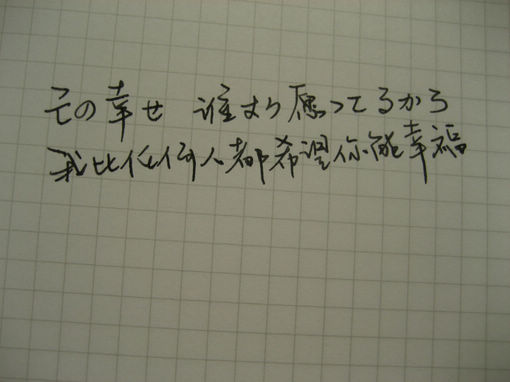 その幸せ 誰より愿ってるから
我比任何人都希望你能幸福